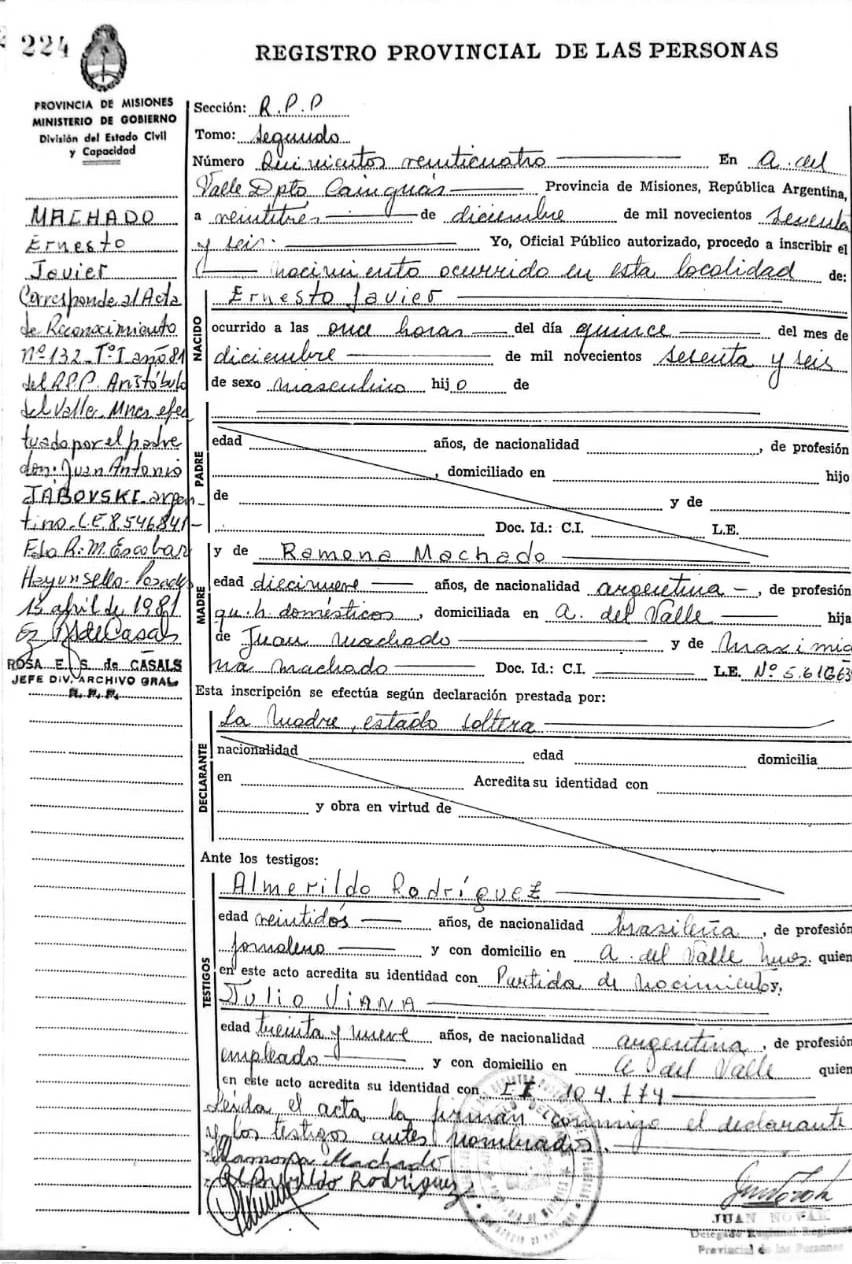 224
REGISTRO PROVINCIAL DE LAS PERSONAS
PROVINCIA DE MISIONES
MINISTERIO DE GOBIERNO
División del Estado Civil
y Capacidad
MACHADO
Ernesto
Javier
Corresponde al Acta
de Reconocimiento
Nº 132 Tº I año 81
del RPP. Aristóbulo
del Valle Mnes efec
tuado por el padre
don: Juan Antonio
JABOVSKI argen
tino. L.E 8.546.841
Fdo R. M. Escobar
Hay un sello. Posadas
13 abril de 1981
ROSA E. S. de CASALS
JEFE DIV. ARCHIVO GRAL.
R. P. P.
Sección: R.P.P
Tomo: Segundo
Número Quinientos veinticuatro En A. del
Valle Dpto Cainguás Provincia de Misiones, República Argentina,
a veintitres de diciembre de mil novecientos setenta
y seis. Yo, Oficial Público autorizado, procedo a inscribir el
nacimiento ocurrido en esta localidad de:
NACIDO
Ernesto Javier
ocurrido a las once horas del día quince del mes de
diciembre de mil novecientos setenta y seis
de sexo masculino hijo de
PADRE
edad años, de nacionalidad , de profesión
, domiciliado en hijo
de y de
Doc. Id.: C.I. L.E.
MADRE
y de Ramona Machado
edad diecinueve años, de nacionalidad argentina , de profesión
qu. h. domésticos , domiciliada en A. del Valle hija
de Juan Machado y de Maximia
na Machado Doc. Id.: C.I. L.E. Nº 5.61663
Esta inscripción se efectúa según declaración prestada por:
DECLARANTE
La madre, estado soltera
nacionalidad edad domicilia
en Acredita su identidad con
y obra en virtud de
Ante los testigos:
TESTIGOS
Almerildo Rodríguez
edad veintidós años, de nacionalidad brasileña , de profesión
jornalero y con domicilio en A. del Valle Mnes. quien
en este acto acredita su identidad con Partida de Nacimiento y,
Julio Viana
edad treinta y nueve años, de nacionalidad argentina , de profesión
empleado y con domicilio en A del Valle quien
en este acto acredita su identidad con 104.774
Leída el acta la firman conmigo el declarante
y los testigos antes nombrados.
Ramona Machado
Rodriguez
JUAN
Delegado Regional
Provincial de las Personas